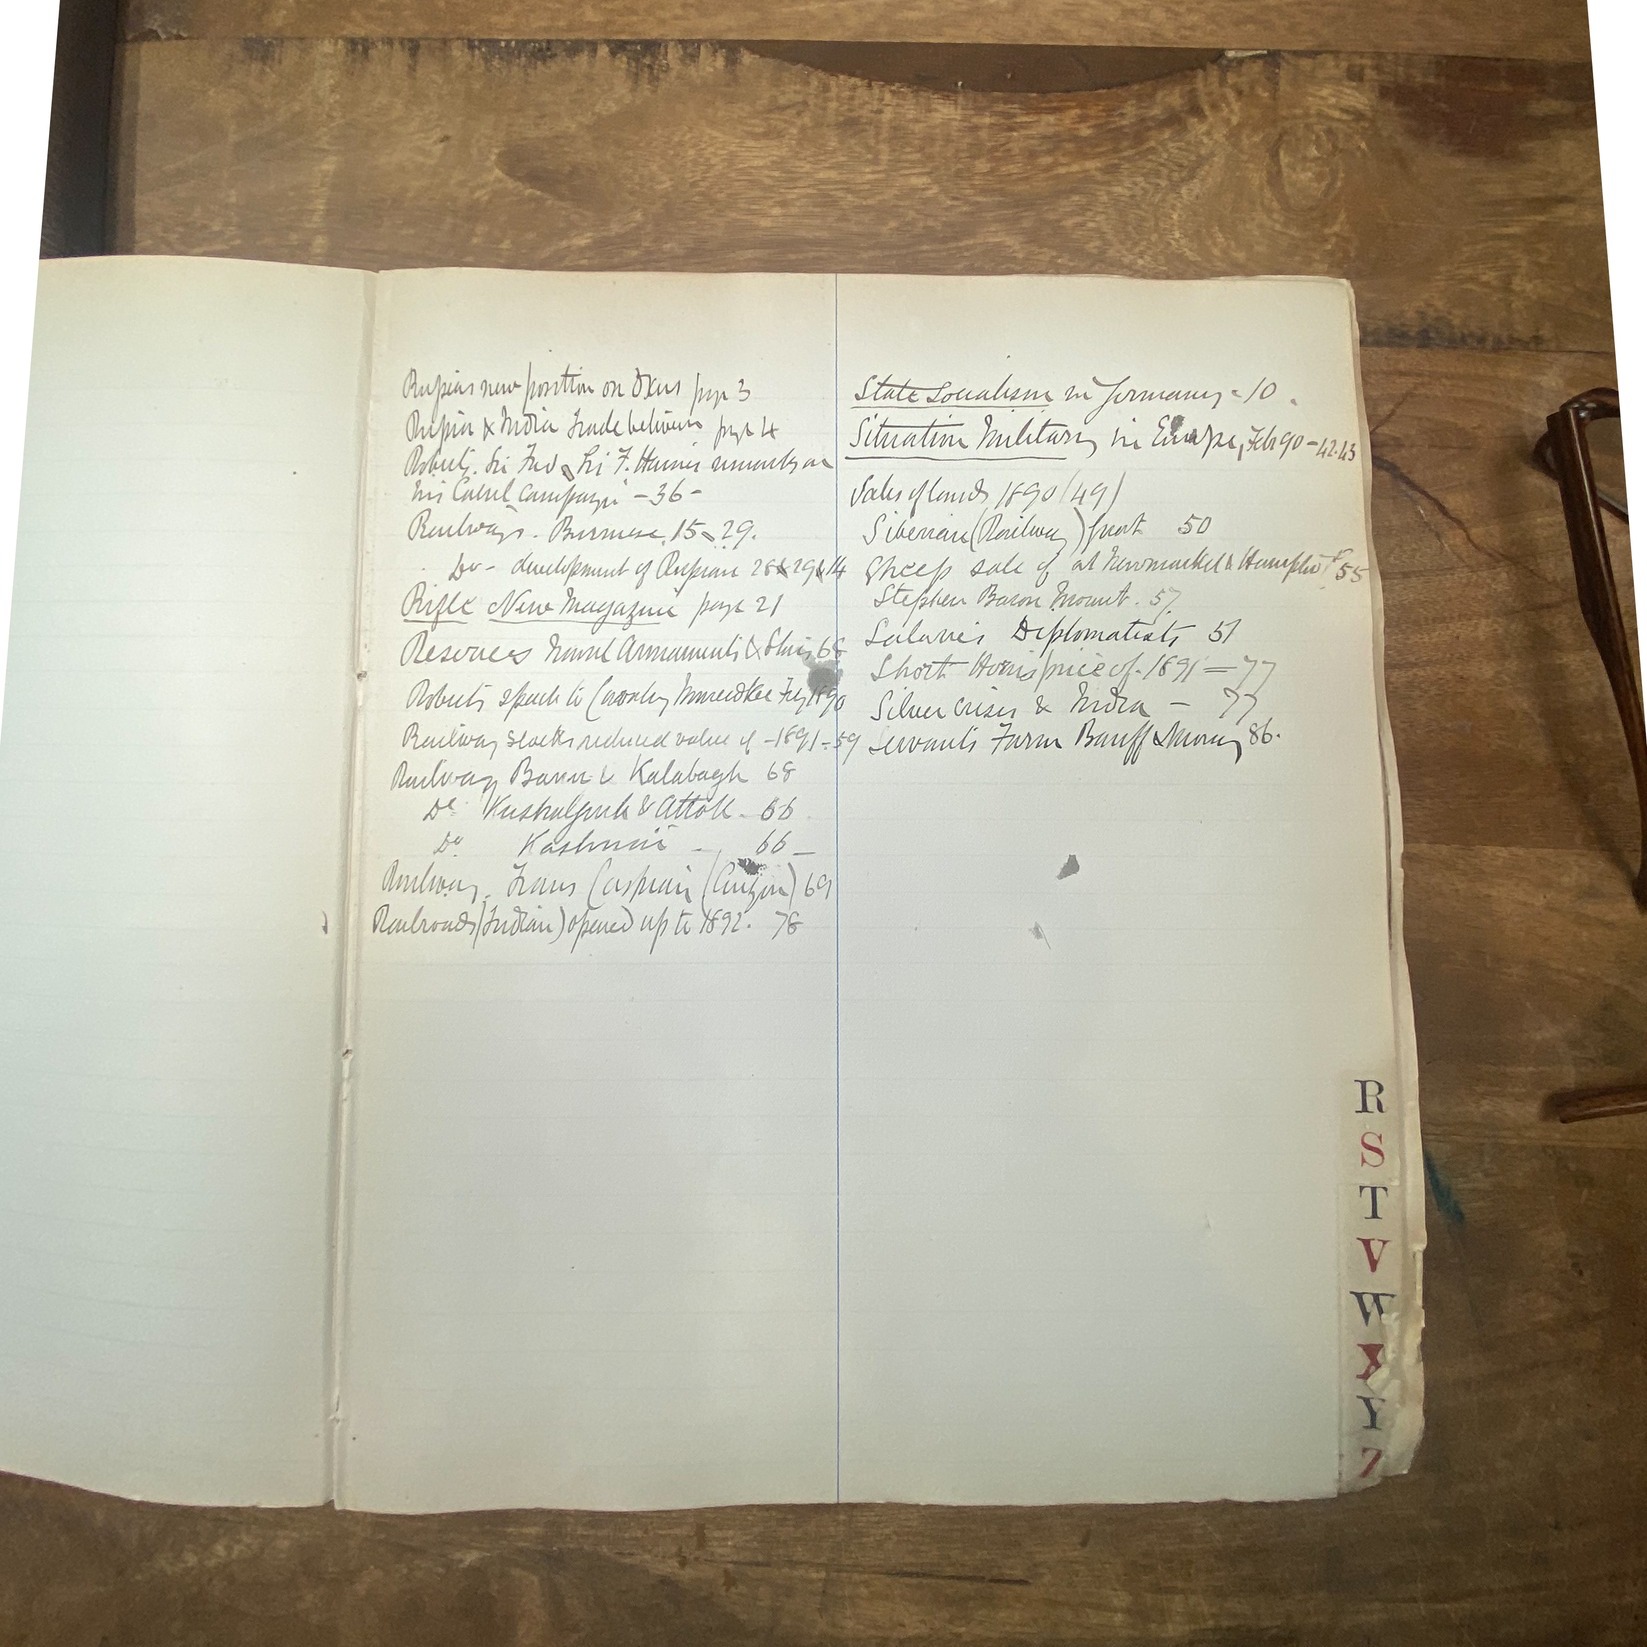 Russias new position on Oxus page 3
Russia & India Trade between page 4
Roberts. Sir Fred Sir F. Haines remarks on
his Cabul Campaign - 36 -
Railways. Burmese. 15 & 29.
Do - development of Russian 28 & 29 & 14
Rifle New Magazine page 21
Resources Naval Armaments & 68
Roberts speech to Cavalry 1890
Railway stocks reduced value of - 1891 - 59
Railway Bannu & Kalabagh 68
Do Kushalgurh & Attok - 66
Do Kashmir - 66 -
Railway. Trans Caspian 69
Railroads (Indian) opened up to 1892. 78
State Socialism in Germany - 10.
Situation Military in Europe, Feb 90 - 42.43
Sales of lands 1890 (49)
Siberian (Railway) 50
Sheep sale of at Newmarket & 55
Stephen Baron Mount. 57
Salaries Diplomatists 51
Short Horns price of. 1891 = 77
Silver crises & India - 77
Servants Farm Banff & Moray 86.
R
S
T
V
W
X
Y
Z